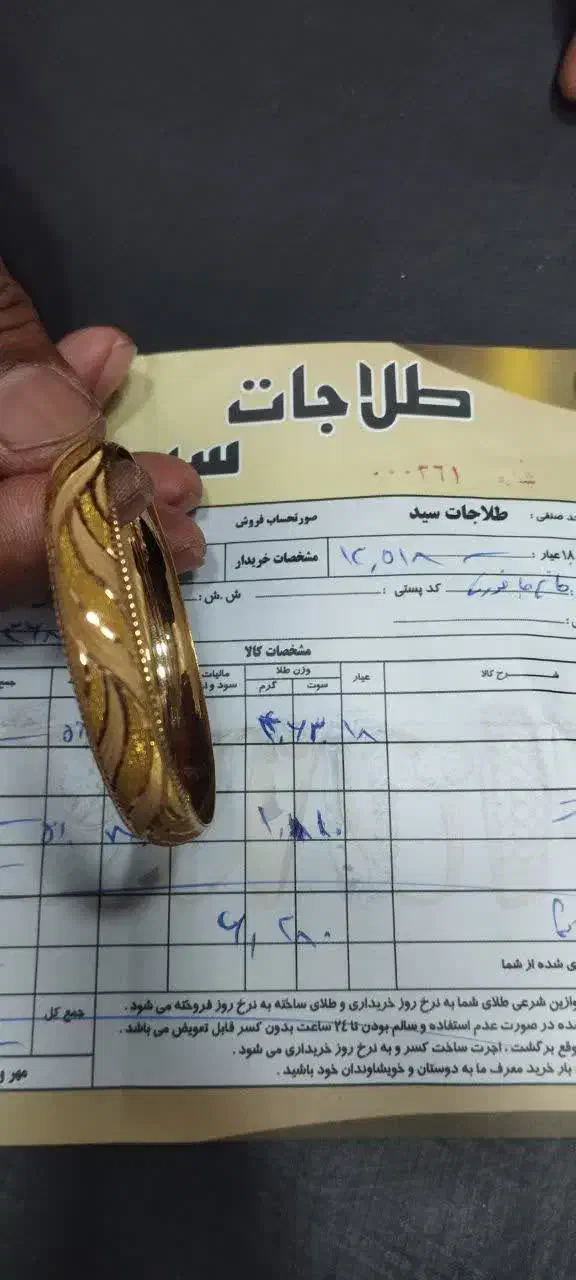 طلاجات
شماره ۰۰۰۳۶۱
صورتحساب فروش
طلاجات سید
۱۸ عیار :
۱۲,۵۱۸
مشخصات خریدار
کد پستی :
ش.ش :
مشخصات کالا
شرح کالا
عیار
وزن طلا
سوت
گرم
مالیات
جمع
۱۸
۴,۶۳۰
۶,۲۸۰
ی شده از شما
وازین شرعی طلای شما به نرخ روز خریداری و طلای ساخته به نرخ روز فروخته می شود .
ده در صورت عدم استفاده و سالم بودن تا ۲۴ ساعت بدون کسر قابل تعویض می باشد .
وقع برگشت ، اجرت ساخت کسر و به نرخ روز خریداری می شود .
بار خرید معرف ما به دوستان و خویشاوندان خود باشید .
جمع کل
مهر و